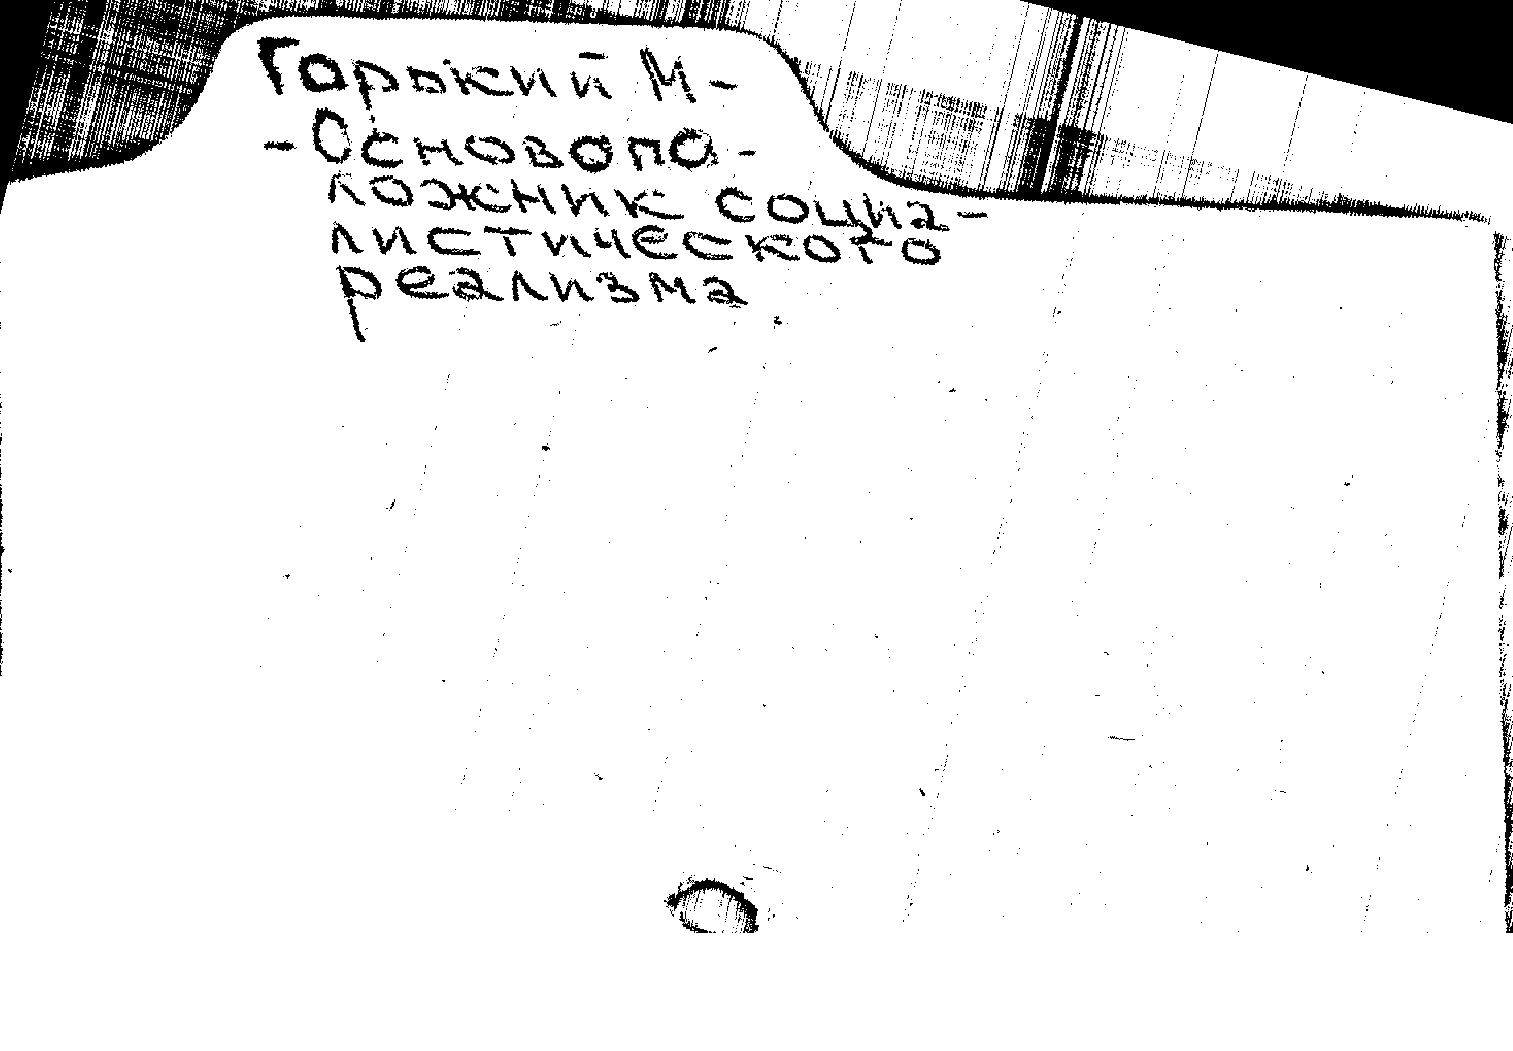 Горький М-
-Основопо-
ложник социа-
листического
реализма